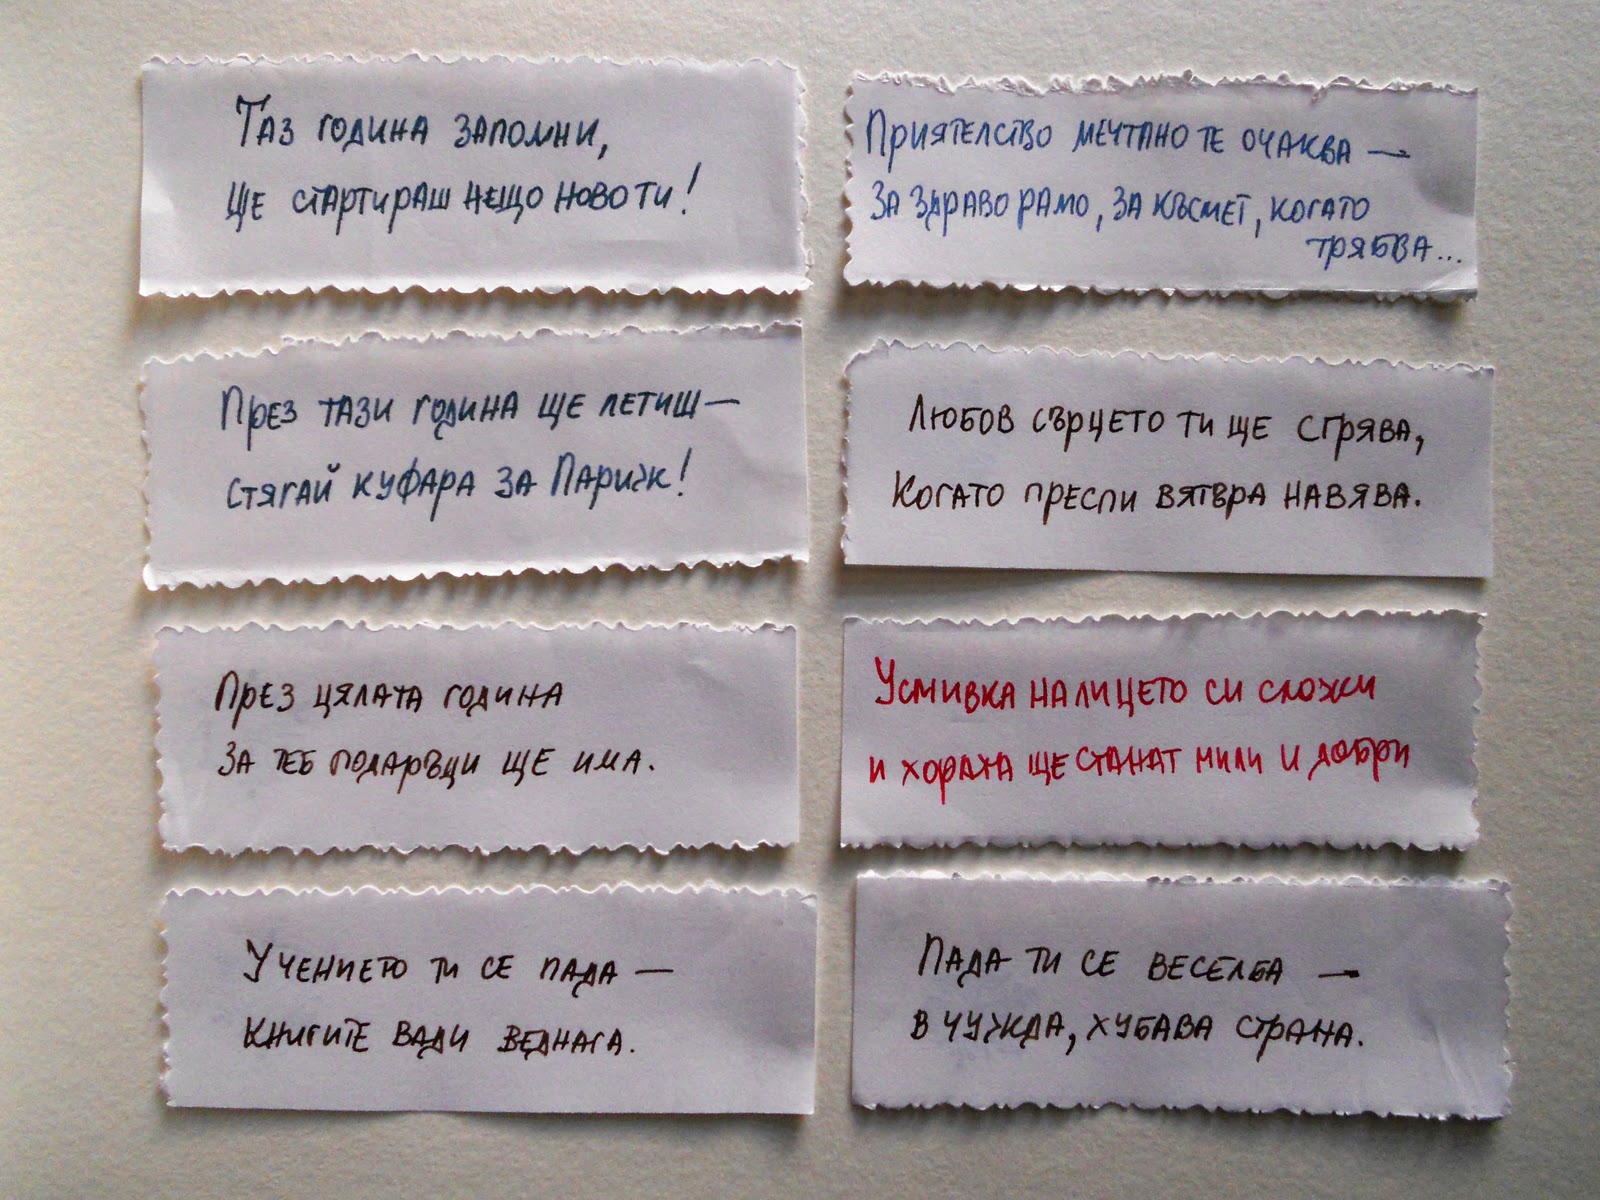 Таз година запомни,
ще стартираш нещо ново ти!
Приятелство мечтано те очаква —
за здраво рамо, за късмет, когато
трябва...
През тази година ще летиш —
стягай куфара за Париж!
Любов сърцето ти ще сгрява,
когато преспи вятъра навява.
През цялата година
за теб подаръци ще има.
Усмивка на лицето си сложи
и хората ще станат мили и добри
Учението ти се пада —
книгите вади веднага.
Пада ти се веселба —
в чужда, хубава страна.